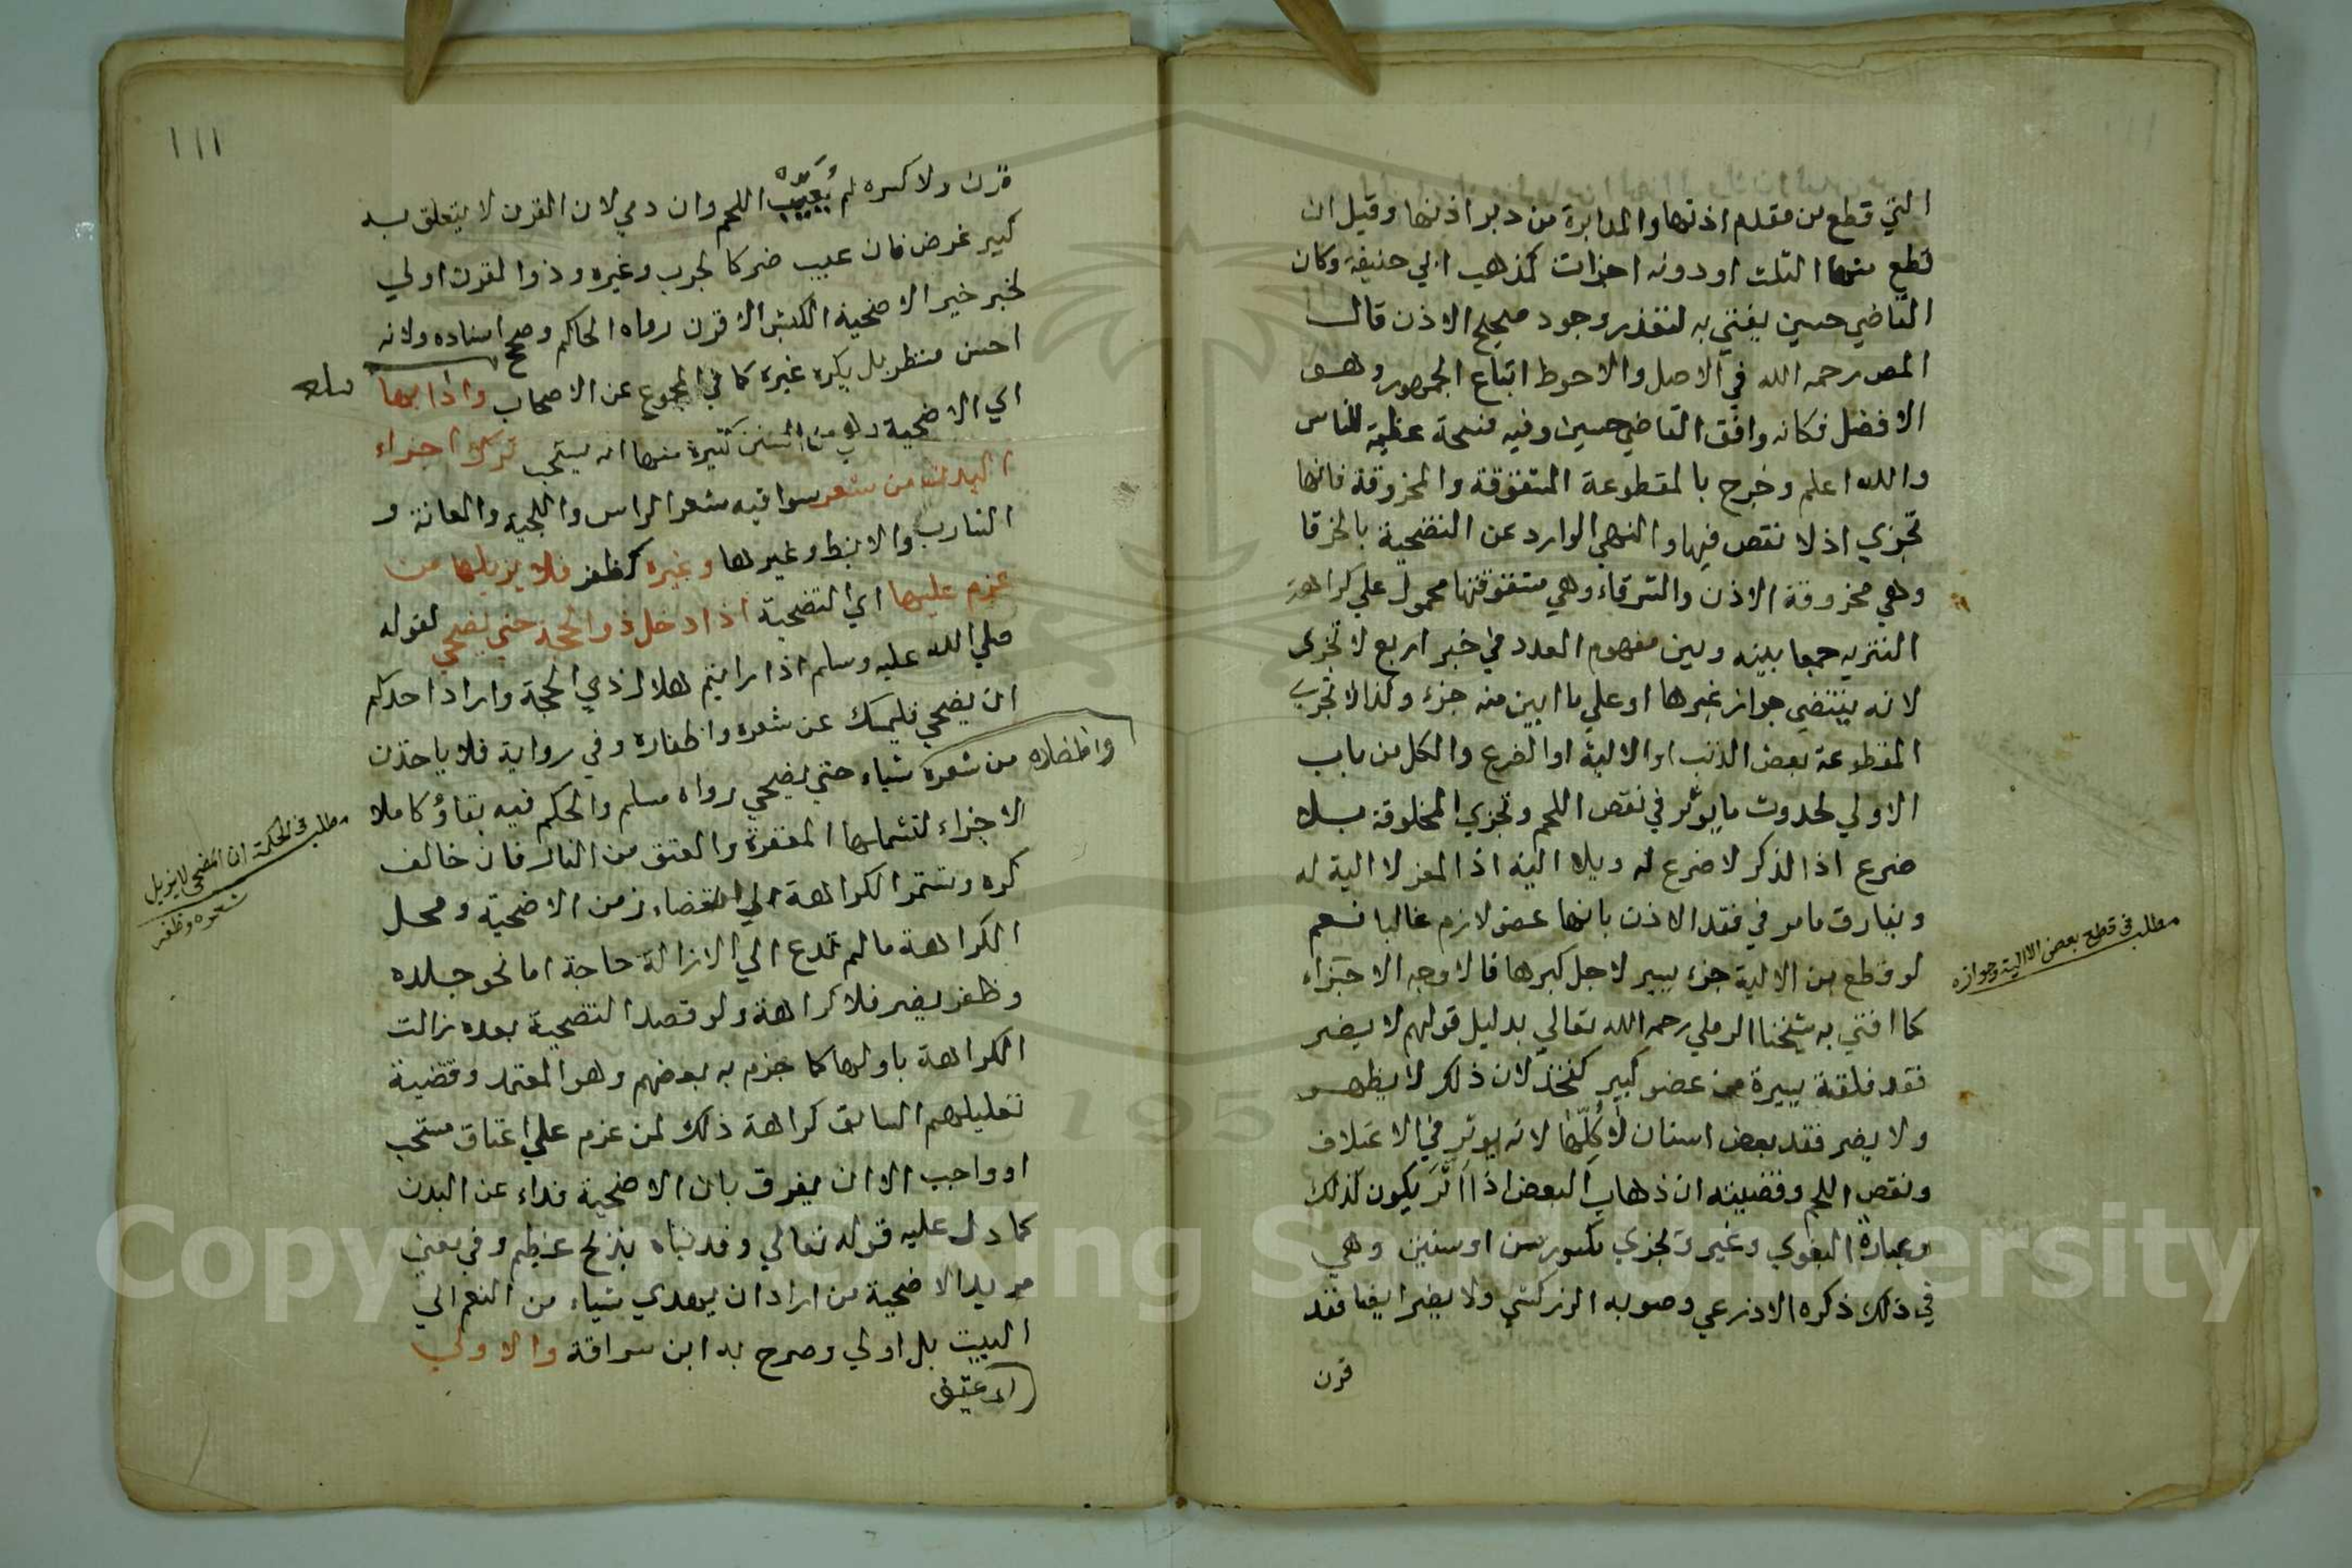 التي قطع من مقدم اذنها والمدابرة من دبر اذنها وقيل ان
قطع منها الثلث او دونه اجزات كمذهب ابي حنيفة وكان
القاضي حسين يفتي به لتعذر وجود صحيح الاذن قال
المص رحمه الله في الاصل والاحوط اتباع الجمهور وهو
الافضل فكانه وافق القاضي حسين وفيه فسحة عظيمة للناس
والله اعلم وخرج بالمقطوعة المشقوقة والمخروقة فانها
تجزي اذ لا نقص فيها والنهي الوارد عن التضحية بالخرقا
وهي مخروقة الاذن والشرقاء وهي مشقوقتها محمول علي كراهة
التنزيه جمعا بينه وبين مفهوم العدد في خبر اربع لا تجزى
لانه يقتضي جواز غيرها او علي ما ابين منه جزء وكذا لا تجزي
المقطوعة بعض الذنب او الالية او الضرع والكل من باب
الاولي لحدوث ما يوثر في نقص اللحم وتجزي المخلوقة بلا
ضرع اذ الذكر لا ضرع له وبلا الية اذ المعز لا الية له
ويفارق ما مر في فقد الاذن بانها عضو لازم غالبا نعم
لو قطع من الالية جزء يسير لاجل كبرها فالاوجه الاجزاء
كما افتي به شيخنا الرملي رحمه الله تعالي بدليل قولهم لا يضر
فقد فلقة يسيرة من عضو كبير كفخذ لان ذلك لا يظهر
ولا يضر فقد بعض اسنان لا كلها لانه يوثر في الاعتلاف
ونقص اللحم وقضيته ان ذهاب البعض اذا اثر يكون كذلك
وعبارة البغوي وغيره وتجزي مكسور سن او سنين وهي
في ذلك ذكره الاذرعي وصوبه الزركشي ولا يضر ايضا فقد
قرن
مطلب في قطع بعض الالية وجوازه
١١١
قرن ولا كسره لم يعيب اللحم وان دمي لان القرن لا يتعلق به
كبير غرض فان عيب ضر كالجرب وغيره وذو القرن اولي
لخبر خير الاضحية الكبش الاقرن رواه الحاكم وصحح اسناده ولانه
احسن منظر بل يكره غيره كما في المجموع عن الاصحاب وادابها
اي الاضحية وهي من السنن كثيرة منها انه يستحب ترك اجزاء
البدن من شعر سوا فيه شعر الراس واللحية والعانة و
الشارب والابط وغيرها وغيره كظفر فلا يزيلها من
عزم عليها اي التضحية اذا دخل ذو الحجة حتي يضحي لقوله
صلي الله عليه وسلم اذا رايتم هلال ذي الحجة واراد احدكم
ان يضحي فليمسك عن شعره واظفاره وفي رواية فلا ياخذن
من شعره شياء حتي يضحي رواه مسلم والحكم فيه بقاؤه كاملا
واظفاره
الاجزاء لتشملها المغفرة والعتق من النار فان خالف
كره وتستمر الكراهة الي انقضاء زمن الاضحية ومحل
الكراهة ما لم تدع الي الازالة حاجة اما نحو جلده
وظفر يضر فلا كراهة ولو قصد التضحية بعدد زالت
الكراهة باولها كما جزم به بعضهم وهو المعتمد وقضية
تعليلهم السابق كراهة ذلك لمن عزم علي اعتاق مستحب
او واجب الا ان يفرق بان الاضحية فداء عن البدن
كما دل عليه قوله تعالي وفديناه بذبح عظيم وفي معني
مريد الاضحية من اراد ان يهدي شياء من النعم الي
البيت بل اولي وصرح به ابن سراقة والاولي
مطلب في الحكمة ان المضحي لا يزيل
شعره وظفره
Copyright © King Saud University
195